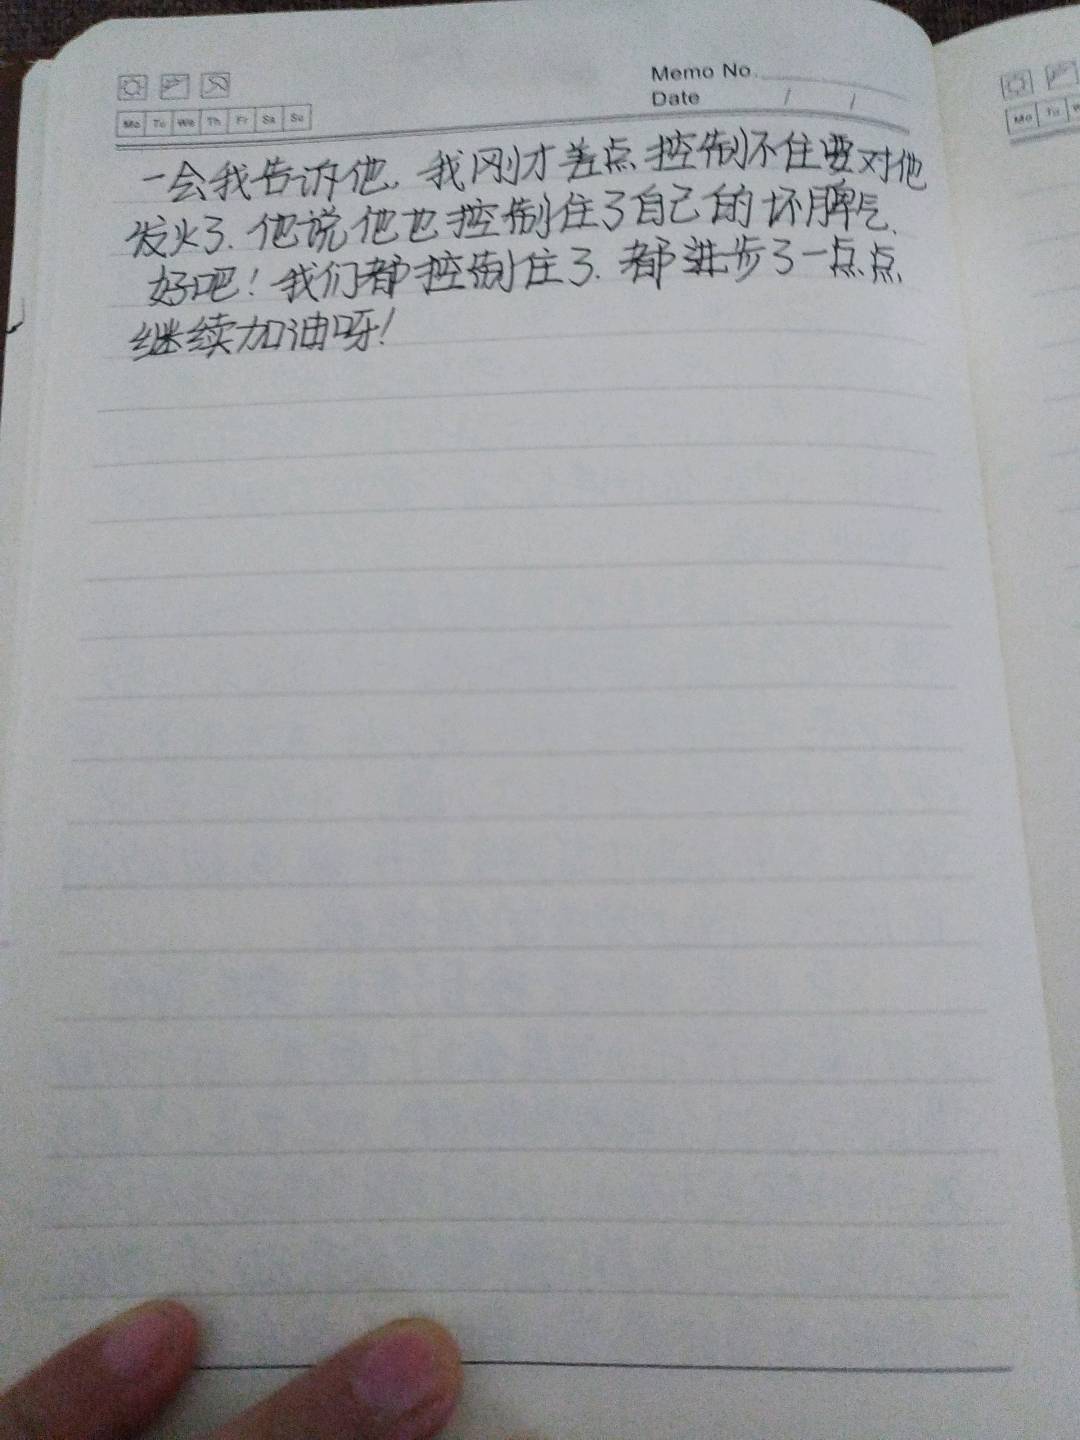 Memo No.
Date / /
Mo Tu We Th Fr Sa Su
Mo Tu
一会我告诉他，我刚才差点控制不住要对他
发火了.他说他也控制住了自己的坏脾气.
好吧！我们都控制住了.都进步了一点点
继续加油呀！